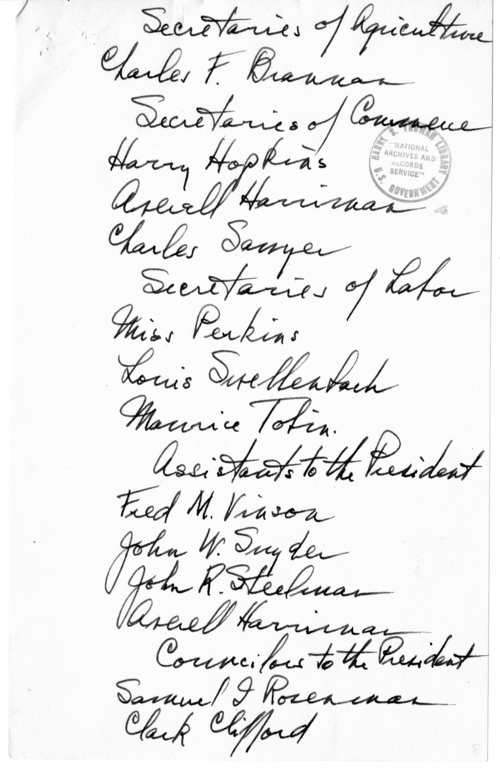 Secretaries of Agriculture
Charles F. Brannan
Secretaries of Commerce
Harry Hopkins
Averell Harriman
Charles Sawyer
Secretaries of Labor
Miss Perkins
Louis Swellenbach
Maurice Tobin.
Assistants to the President
Fred M. Vinson
John W. Snyder
John R. Steelman
Averell Harriman
Councilors to the President
Samuel I Rosenman
Clark Clifford
HARRY S. TRUMAN LIBRARY
"NATIONAL
ARCHIVES AND
RECORDS
SERVICE"
U.S. GOVERNMENT